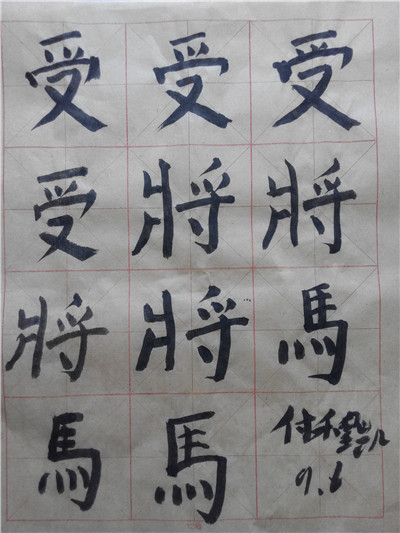 受受受
受將將
將將馬
馬馬
9.6